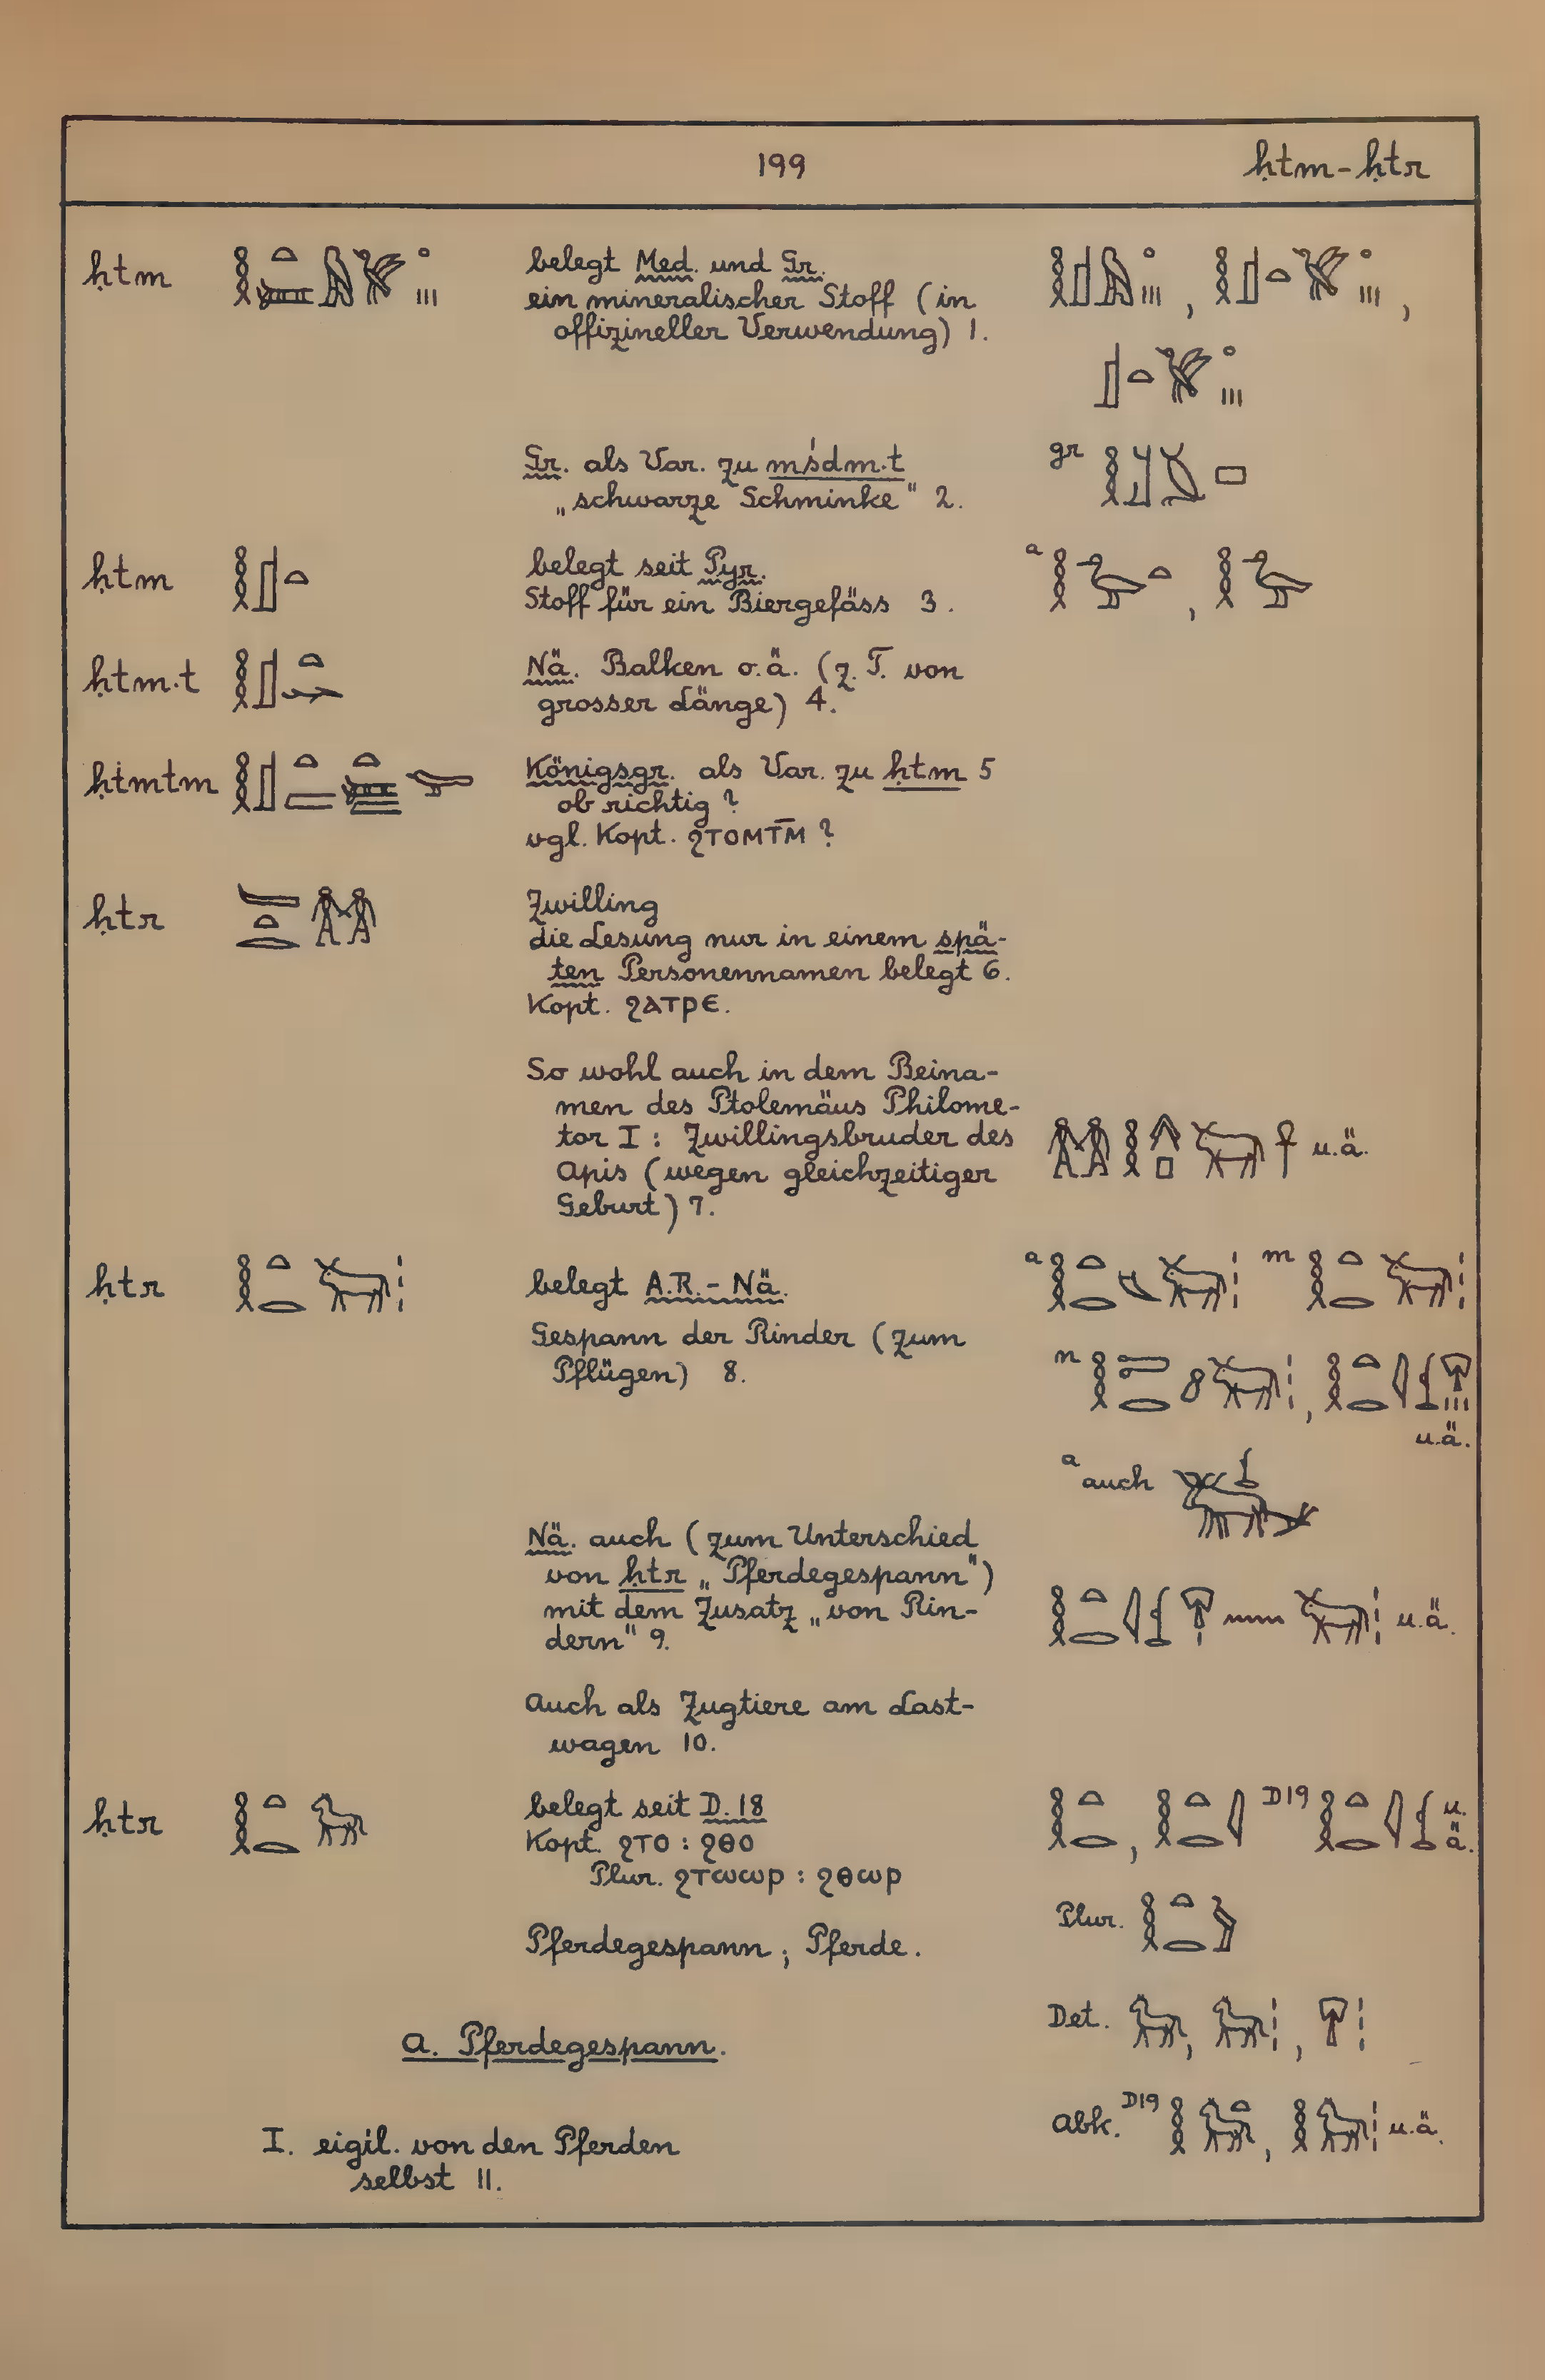 199
ḥtm-ḥtr
ḥtm
belegt Med. und Gr.
ein mineralischer Stoff (in
offizineller Verwendung) 1.
Gr. als Var. zu mśdm.t
„schwarze Schminke" 2.
gr
ḥtm
belegt seit Pyr.
Stoff für ein Biergefäss 3.
a
ḥtm.t
Nä. Balken o.ä. (z.T. von
grosser Länge) 4.
ḥtmtm
Königsgr. als Var. zu ḥtm 5
ob richtig?
vgl. Kopt. ϩⲧⲟⲙⲧⲙ̄ ?
ḥtr
Zwilling
die Lesung nur in einem spä-
ten Personennamen belegt 6.
Kopt. ϩⲁⲧⲣⲉ.
So wohl auch in dem Beina-
men des Ptolemäus Philome-
tor I: Zwillingsbruder des
Apis (wegen gleichzeitiger
Geburt) 7.
u.ä.
ḥtr
belegt A.R.-Nä.
a
m
Gespann der Rinder (zum
Pflügen) 8.
n
u.ä.
a auch
Nä. auch (zum Unterschied
von ḥtr „Pferdegespann")
mit dem Zusatz „von Rin-
dern" 9.
u.ä.
Auch als Zugtiere am Last-
wagen 10.
ḥtr
belegt seit D.18
Kopt. ϩⲧⲟ : ϩⲑⲟ
Plur. ϩⲧⲱⲱⲣ : ϩⲑⲱⲣ
D19
u.ä.
Plur.
Pferdegespann; Pferde.
Det.
A. Pferdegespann.
Abk. D19
u.ä.
I. eigtl. von den Pferden
selbst 11.